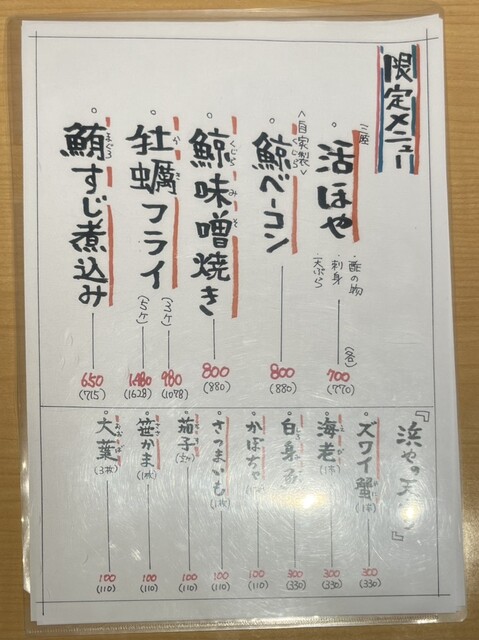 限定メニュー
三陸
。活ほや
・酢の物
・刺身
・天ぷら
(各)
700
(770)
<自家製>
。鯨ベーコン
くじら
800
(880)
。鯨味噌焼き
くじら み そ
800
(880)
。牡蠣フライ
か き
(3ケ)
980
(1078)
(5ケ)
1480
(1628)
。鮪すじ煮込み
まぐろ
650
(715)
『浜やの天
』
。ズワイ蟹
かに
(1本)
300
(330)
。海老
えび
(1本)
300
(330)
。白身魚
300
(330)
。かぼちゃ
100
(110)
。さつまいも
(1枚)
100
(110)
。茄子
100
(110)
。笹かま
ささ
(1枚)
100
(110)
。大葉
おおば
(3枚)
100
(110)